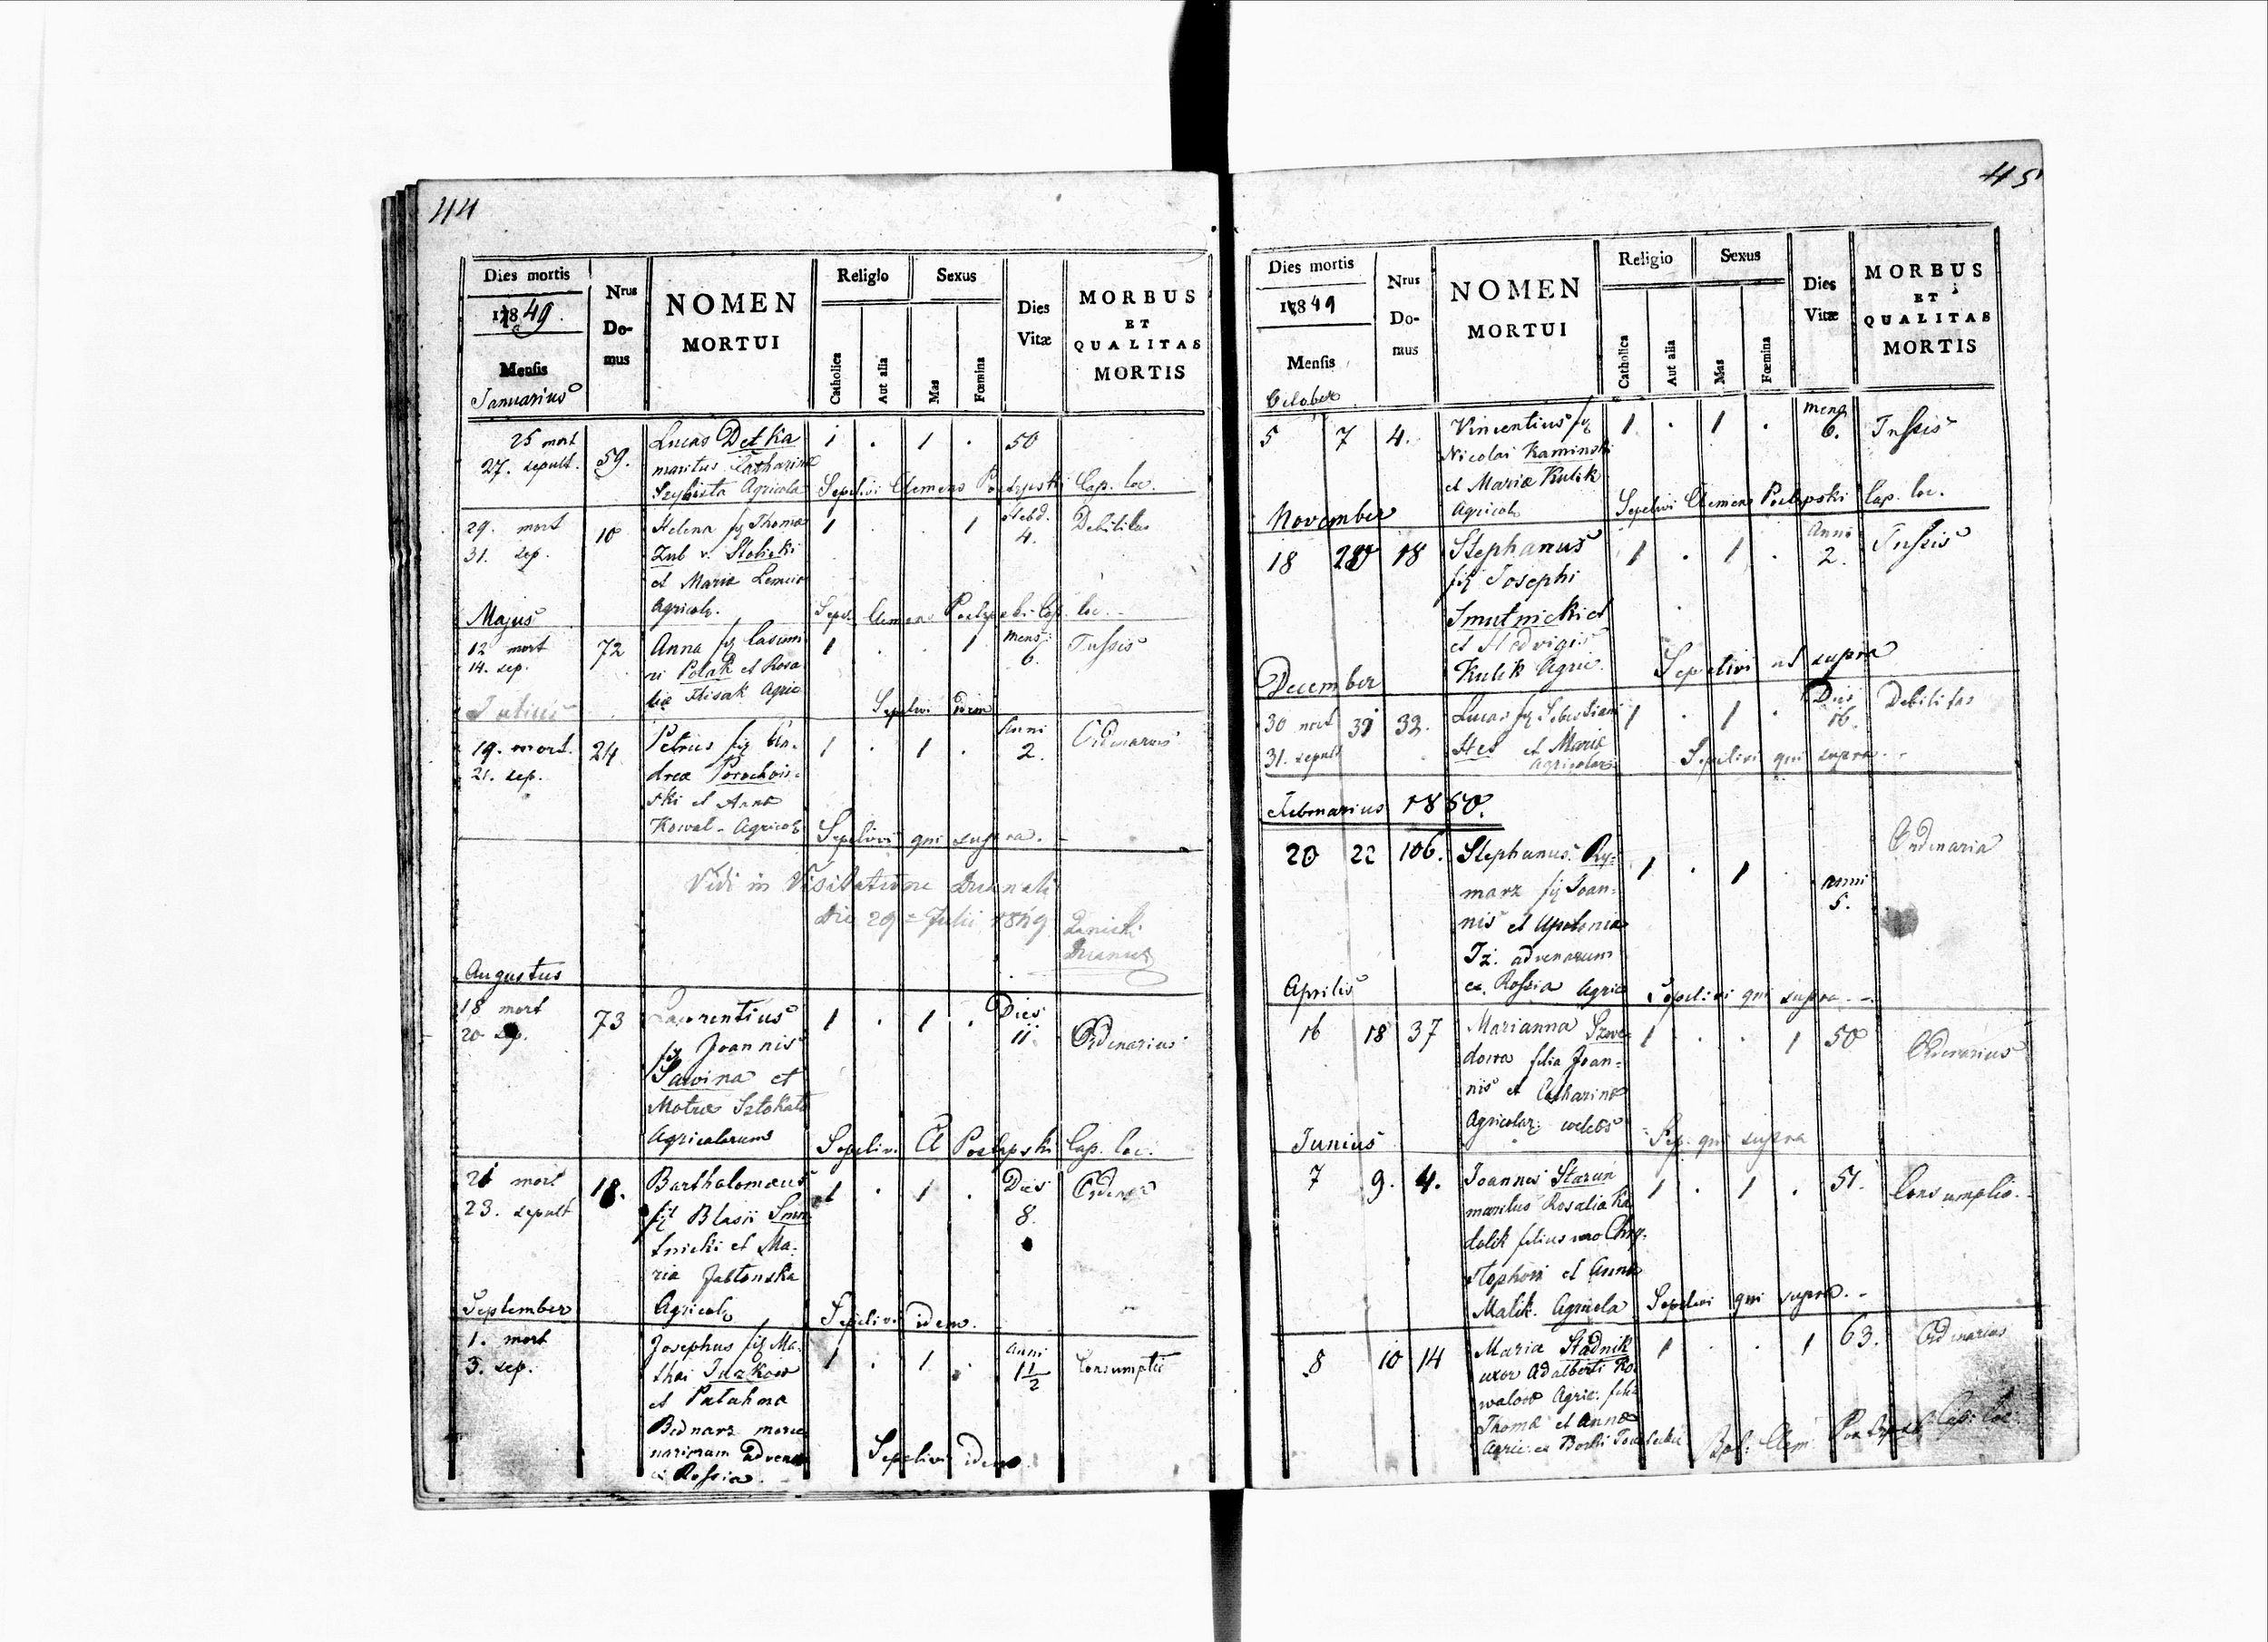 44
Dies mortis
1849.
Mensis
Januarius
Nrus
Do-
mus
NOMEN
MORTUI
Religio
Catholica
Aut alia
Sexus
Mas
Fœmina
Dies
Vitæ
MORBUS
ET
QUALITAS
MORTIS
25 mort
27. sepult.
59.
Lucas Detka
maritus Catharina
Agricola
1 . 1 .
50
Sepelivi Clemens Cap. loc.
29. mort
31. sep.
10
Helena fil Thoma
Zub v. Slobicki
et Maria
Agricola.
1 . . 1
Hebd.
4.
Debilitas
Sepel. Clemens Cap. loc.
Majus
12 mort
14. sep.
72
Anna fil Casimi
ri Polak et Rosa
lia Agric
1 . . 1
mens
6.
Tussis
Sepelivi idem
19. mort.
21. sep.
24
Petrus fil An-
drea
ski et Anna
Kowal - Agricol
1 . 1 .
Anni
2.
Ordinarius
Sepelivi qui supra. -
Vidi in Visitatione Decanali
Die 29 = Julii 1849
Augustus
18 mort
20 sep.
73
Laurentius
fil Joannis
Sawina et
Agricolarum
1 . 1 .
Dies
11
Ordinarius
Sepelivi Cl Cap. loc.
21 mort
23. sepult
18.
Bartholomæus
fil Blasii Smu
tnicki et Ma-
ria Jabłonska
Agricol
1 . 1 .
Dies
8.
Sepelivi idem.
September
1. mort
3. sep.
Josephus fil Ma-
thai
et
Bednarz merce
nariorum advena
ex Rossia.
1 . 1 .
Anni
1 1/2
Sepelivi idem
45
Dies mortis
1849
Mensis
October
Nrus
Do-
mus
NOMEN
MORTUI
Religio
Catholica
Aut alia
Sexus
Mas
Fœmina
Dies
Vitæ
MORBUS
ET
QUALITAS
MORTIS
5 7 4.
Vincentius fil
Nicolai Kaminski
et Maria Kulik
Agricola
1 . 1 .
mens
6.
Tussis
Sepelivi Clemens Cap. loc.
November
18 20 18
Stephanus
fil Josephi
Smutnicki et
et Hedvigis
Kulik Agric.
1 . 1 .
Anni
2.
Tussis
Sepelivi ut supra
December
30 mort 31 32.
31. sepult
Lucas fil Sebastiani
et Maria
Agricolar
1 . 1 .
Dies
16.
Debilitas
Sepelivi qui supra. -
Februarius 1850.
20 22 106.
Stephanus Ry-
marz fil Joan-
nis et Apolonia
Iż. advenarum
ex. Rossia Agric
1 . 1 .
anni
5.
Ordinaria
Sepelivi qui supra. -
Aprilis
16 18 37
Marianna
dowa filia Joan-
nis et Catharina
Agricolar.
1 . . 1
50
Ordinarius
Sep. qui supra
Junius
7 9. 4.
Joannes Starun
maritus Rosalia Ka
dolik filius vero Chry-
stophori et Anna
Malik. Agricola
1 . 1 .
51.
Consumptio. -
Sepelivi qui supra. -
8 10 14
Maria Stadnik
uxor Adalberti Ko
walow Agric. filia
Thoma et Anna
Agric. ex
1 . . 1
63.
Ordinarius
Cap. loc.